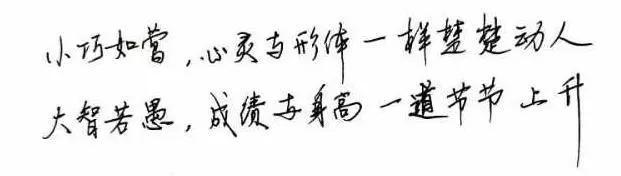 小巧如常，心灵与形体一样楚楚动人
大智若愚，成绩与身高一道节节上升